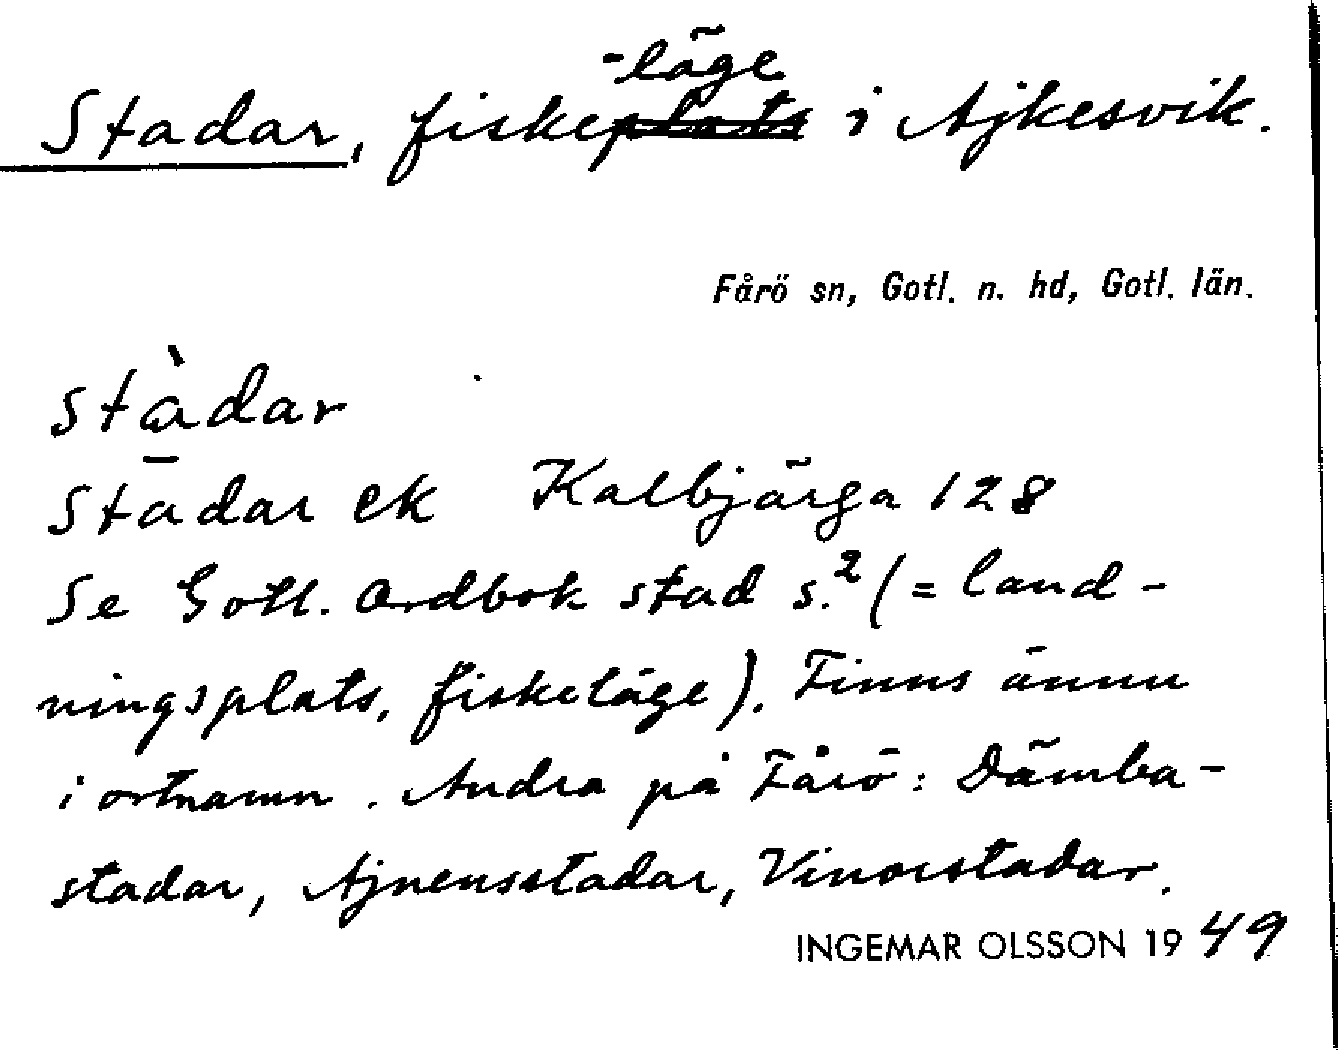 -läge
Stadar, fiskeplats i Ajkesvik.
Fårö sn, Gotl. n. hd, Gotl. län.
stàdar
Stādar ek Kalbjärga 128
Se Gotl. Ordbok stad s.² (= land-
ningsplats, fiskeläge). Finns ännu
i ortnamn. Andra på Fårö: Dämba-
stadar, Ajnensstadar, Vinorstadar.
INGEMAR OLSSON 1949